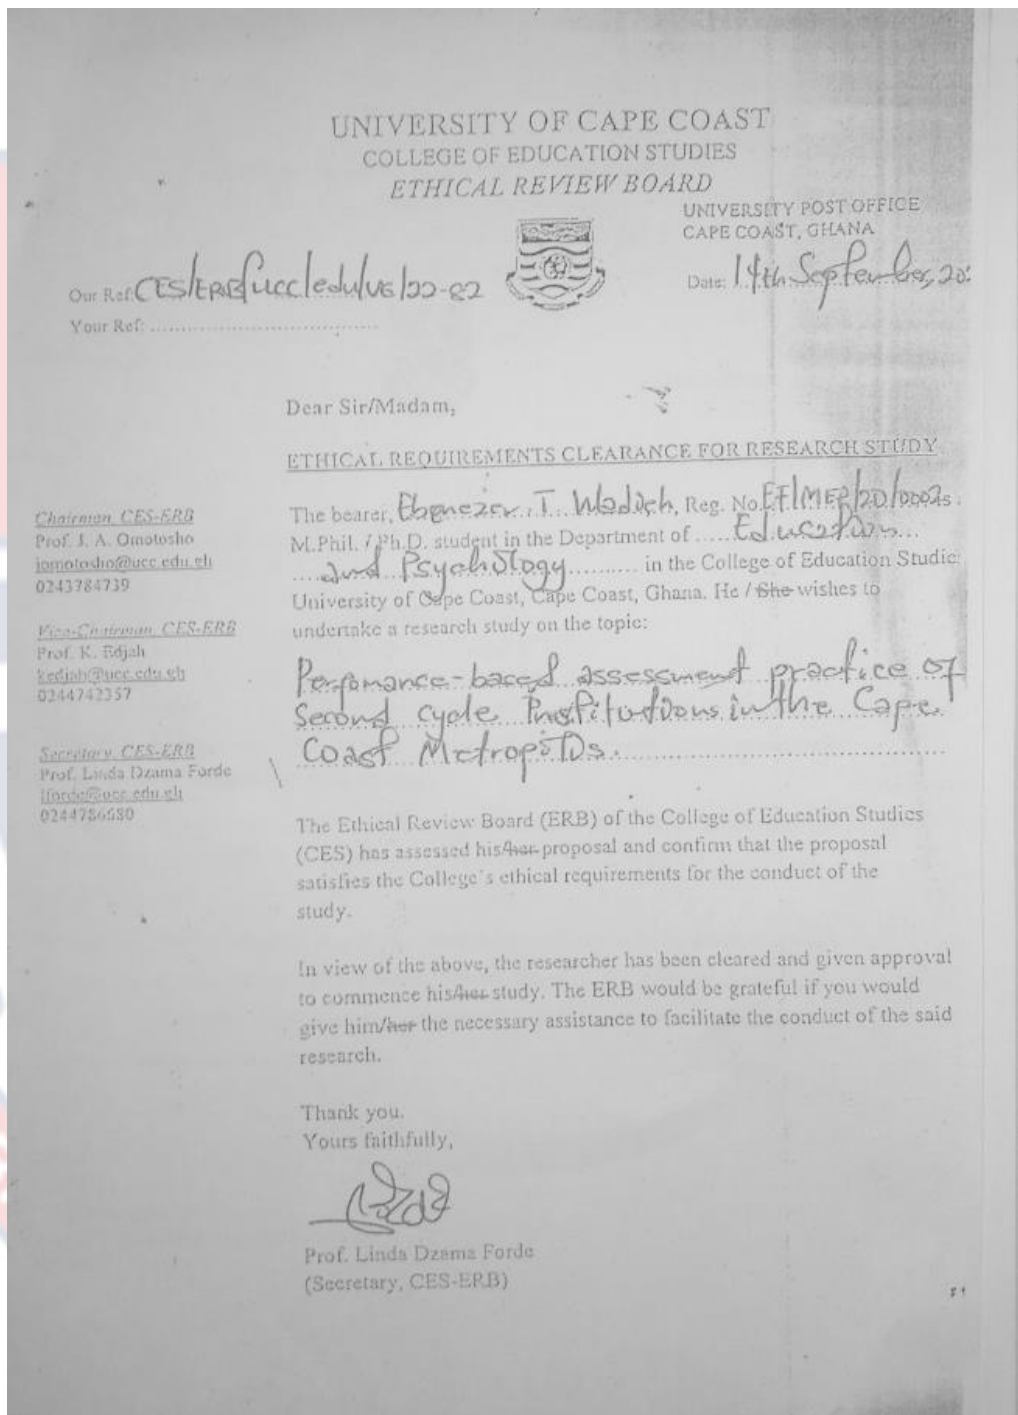 UNIVERSITY OF CAPE COAST
COLLEGE OF EDUCATION STUDIES
ETHICAL REVIEW BOARD
UNIVERSITY POST OFFICE
CAPE COAST, GHANA
Our Ref: CES/ERB/ucc/edu/V6/22-82
Date: 14th September, 20
Your Ref: ..................................
Dear Sir/Madam,
ETHICAL REQUIREMENTS CLEARANCE FOR RESEARCH STUDY
Chairman, CES-ERB
Prof. J. A. Omotosho
jomotosho@ucc.edu.gh
0243784739
Vice-Chairman, CES-ERB
Prof. K. Edjah
kedjah@ucc.edu.gh
0244742357
Secretary, CES-ERB
Prof. Linda Dzama Forde
lforde@ucc.edu.gh
0244786680
The bearer, Ebenezer T. Reg. No.
M.Phil. / Ph.D. student in the Department of ..... Education
and Psychology .......... in the College of Education Studie
University of Cape Coast, Cape Coast, Ghana. He / She wishes to
undertake a research study on the topic:
Perfomance-based assessment practice of
Second cycle Institutions in the Cape
Coast Metropolis.
The Ethical Review Board (ERB) of the College of Education Studies
(CES) has assessed his/her proposal and confirm that the proposal
satisfies the College's ethical requirements for the conduct of the
study.
In view of the above, the researcher has been cleared and given approval
to commence his/her study. The ERB would be grateful if you would
give him/her the necessary assistance to facilitate the conduct of the said
research.
Thank you.
Yours faithfully,
Prof. Linda Dzama Forde
(Secretary, CES-ERB)